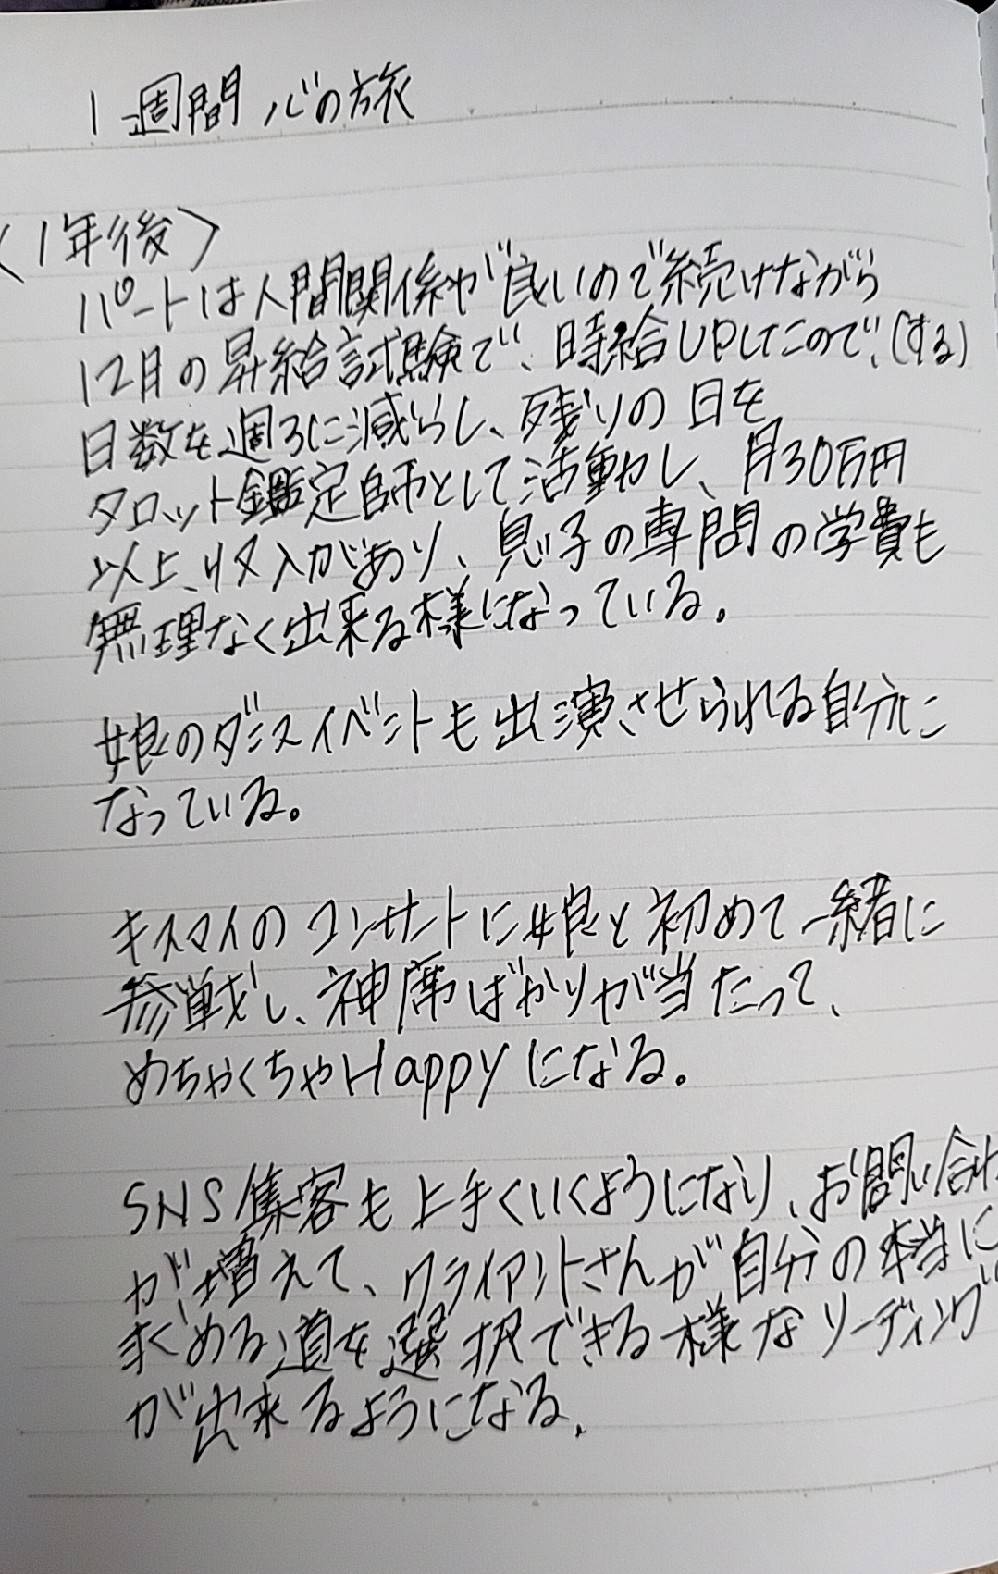 1週間 心の旅
〈1年後〉
パートは人間関係が良いので続けながら
12月の昇給試験で、時給UPしたので、(する)
日数を週3に減らし、残りの日を
タロット鑑定師として活動し、月30万円
以上、収入があり、息子の専門の学費も
無理なく出来る様になっている。
娘のダンスイベントも出演させられる自分に
なっている。
キスマイのコンサートに娘と初めて一緒に
参戦し、神席ばかりが当たって、
めちゃくちゃHappyになる。
SNS集客も上手くいくようになり、お問い合わ
が増えて、クライアントさんが自分の本当に
求める道を選択できる様なリーディング
が出来るようになる。